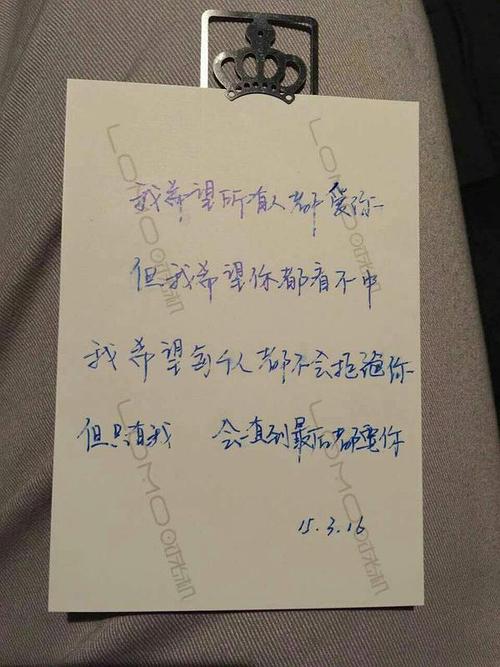 我希望所有人都爱你
但我希望你都看不中
我希望每个人都不会拒绝你
但只有我 会一直到最后都要你
15.3.16
LOMO
LOMO
LOMO
LOMO